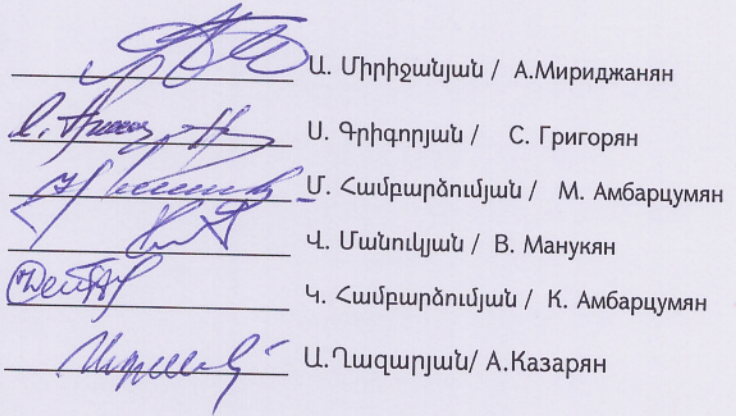 Ա. Միրիջանյան / А.Мириджанян
Ս. Գրիգորյան / С. Григорян
Մ. Համբարձումյան / М. Амбарцумян
Վ. Մանուկյան / В. Манукян
Կ. Համբարձումյան / К. Амбарцумян
Ա.Ղազարյան/ А.Казарян